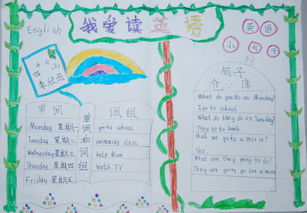 English
我爱读英语
英语
小句子
单词
Monday 星期一
Tuesday 星期二
Wednesday 星期三
Thursday 星期四
Friday 星期五
单词和词组
词组
go to school
swimming class
help Mom
watch TV
句子仓库
What do you do on Monday?
I go to school
What do they do on Tuesday?
They go to
shall we go to a movie?
Yes.
What are they going to do?
They are going